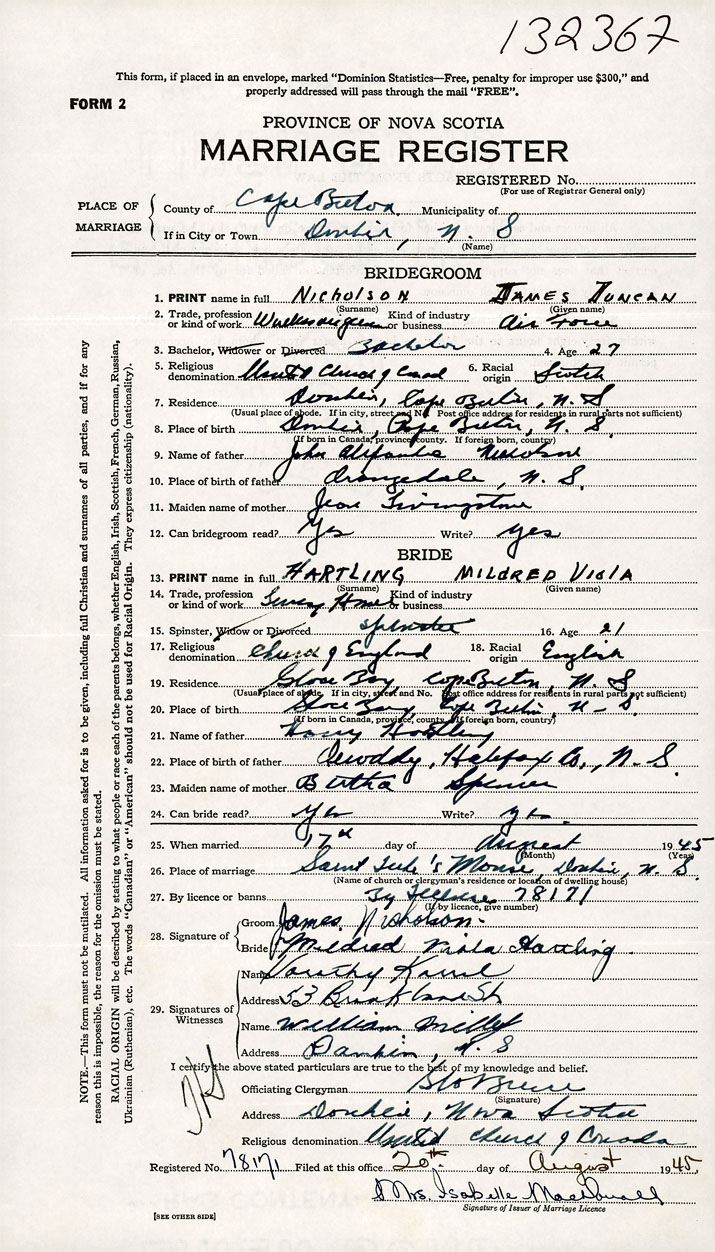 132367
This form, if placed in an envelope, marked "Dominion Statistics—Free, penalty for improper use $300," and
properly addressed will pass through the mail "FREE".
FORM 2
PROVINCE OF NOVA SCOTIA
MARRIAGE REGISTER
REGISTERED No.
(For use of Registrar General only)
PLACE OF MARRIAGE
County of Cape Breton Municipality of
If in City or Town Donkin, N. S
(Name)
BRIDEGROOM
1. PRINT name in full NICHOLSON JAMES DUNCAN
(Surname) (Given name)
2. Trade, profession or kind of work Kind of industry or business Air Force
3. Bachelor, Widower or Divorced Bachelor 4. Age 27
5. Religious denomination United Church of Canad 6. Racial origin Scotch
7. Residence Donkin, Cape Breton, N. S
(Usual place of abode. If in city, street and No. Post office address for residents in rural parts not sufficient)
8. Place of birth Donkin, Cape Breton, N. S.
(If born in Canada, province, county. If foreign born, country)
9. Name of father John Alexander Nicholson
10. Place of birth of father Orangedale, N. S.
11. Maiden name of mother Jean Livingstone
12. Can bridegroom read? Yes Write? Yes
BRIDE
13. PRINT name in full HARTLING MILDRED VIOLA
(Surname) (Given name)
14. Trade, profession or kind of work Kind of industry or business
15. Spinster, Widow or Divorced Spinster 16. Age 21
17. Religious denomination Church of England 18. Racial origin English
19. Residence Glace Bay Cape Breton, N. S.
(Usual place of abode. If in city, street and No. Post office address for residents in rural parts not sufficient)
20. Place of birth Glace Bay, Cape Breton, N. S.
(If born in Canada, province, county. If foreign born, country)
21. Name of father Harry Hartling
22. Place of birth of father Halifax Co., N. S.
23. Maiden name of mother Bertha Spencer
24. Can bride read? Yes Write? Yes
25. When married 17th day of August 1945
(Month) (Year)
26. Place of marriage Saint Luke's Manse, Donkin, N. S.
(Name of church or clergyman's residence or location of dwelling house)
27. By licence or banns By License 78171
(If by licence, give number)
28. Signature of Groom James Nicholson
Bride Mildred Viola Hartling
29. Signatures of Witnesses
Name Dorothy
Address 53 St
Name William
Address Donkin, N. S
I certify the above stated particulars are true to the best of my knowledge and belief.
Officiating Clergyman
(Signature)
Address Donkin, Nova Scotia
Religious denomination United Church of Canada
Registered No. 78171 Filed at this office 20th day of August 1945.
Mrs. Isabelle MacDonald
Signature of Issuer of Marriage Licence
[SEE OTHER SIDE]
NOTE.—This form must not be mutilated. All information asked for is to be given, including full Christian and surnames of all parties, and if for any
reason this is impossible, the reason for the omission must be stated.
RACIAL ORIGIN will be described by stating to what people or race each of the parents belongs, whether English, Irish, Scottish, French, German, Russian,
Ukrainian (Ruthenian), etc. The words "Canadian" or "American" should not be used for Racial Origin. They express citizenship (nationality).